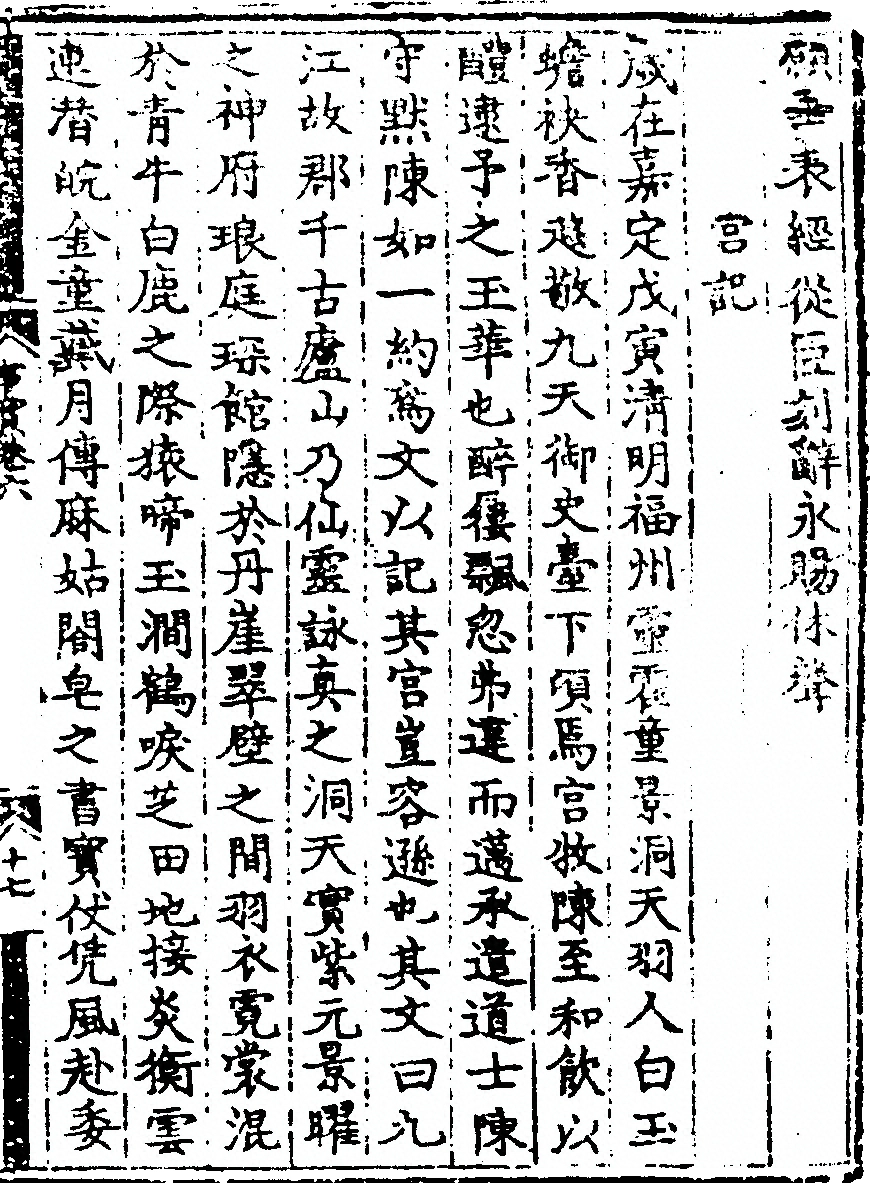 願垂末經從臣刻辭永賜休聲
宮記
歲在嘉定戊寅淸明福州霍童景洞天羽人白玉
蟾袂香趍敬九天御史臺下頃焉宮牧陳至和飲以
醴逮予之玉華也醉僂飄忽弗違而邁承遣道士陳
守默陳如一約爲文以記其宮豈容遜也其文曰九
江故郡千古廬山乃仙靈詠真之洞天實紫元景曜
之神府琅庭琛館隱於丹崖翠壁之間羽衣霓裳混
於青牛白鹿之際猿啼玉澗鶴唳芝田地接炎衡雲
連潛皖金童藏月傳麻姑閤皂之書寶伏凭風赴委
事實卷六
十七